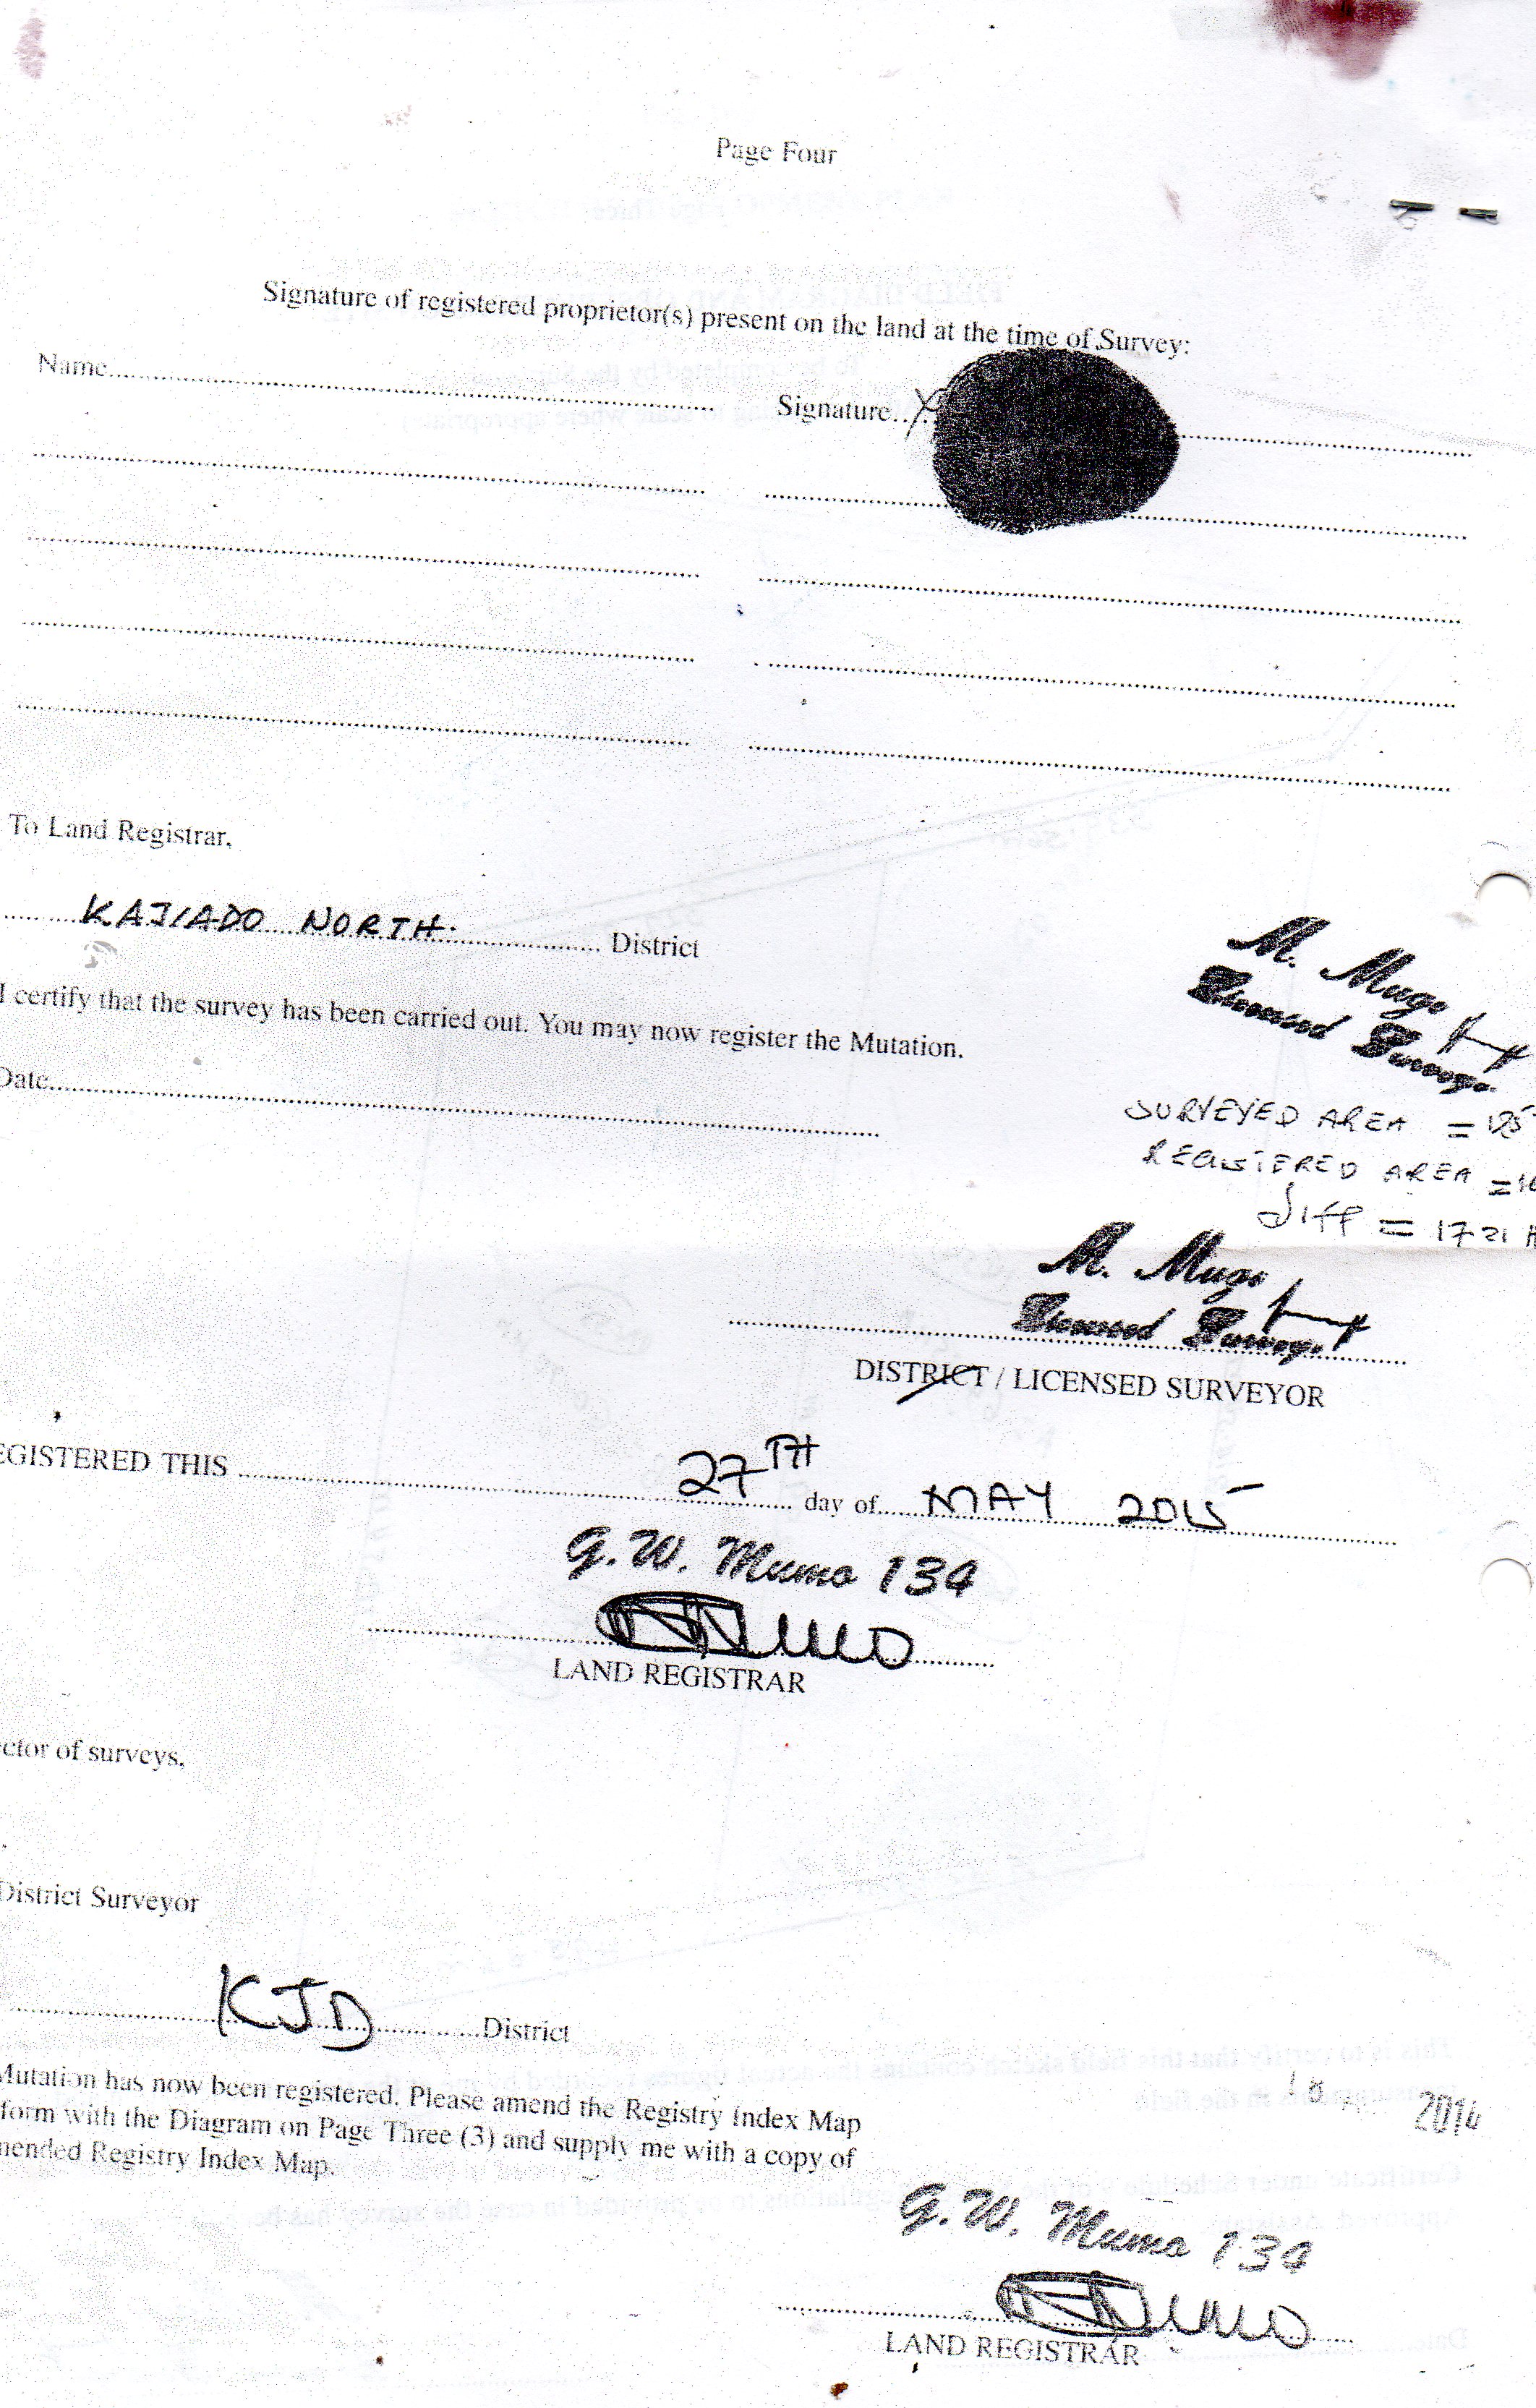 Page Four
Signature of registered proprietor(s) present on the land at the time of Survey:
Name.......... Signature.....X
To Land Registrar,
KAJIADO NORTH. District
I certify that the survey has been carried out. You may now register the Mutation.
Date..........
M. Mugo
Licensed Surveyor
SURVEYED AREA =
REGISTERED AREA =
diff = 17.21 H
M. Mugo
Licensed Surveyor
DISTRICT / LICENSED SURVEYOR
EGISTERED THIS 27TH day of MAY 2015
G.W. Mumo 134
LAND REGISTRAR
ector of surveys,
District Surveyor
KJD District
Mutation has now been registered. Please amend the Registry Index Map
form with the Diagram on Page Three (3) and supply me with a copy of
mended Registry Index Map.
2014
G.W. Mumo 134
LAND REGISTRAR